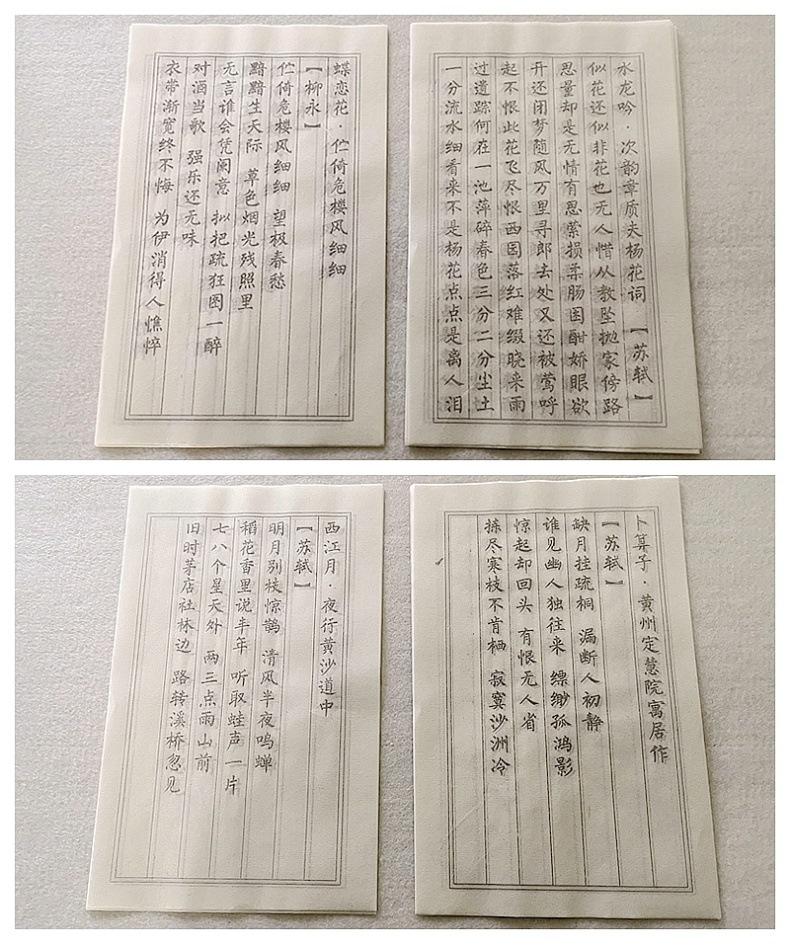 水龙吟·次韵章质夫杨花词 【苏轼】
似花还似非花也无人惜从教坠抛家傍路
思量却是无情有思萦损柔肠困酣娇眼欲
开还闭梦随风万里寻郎去处又还被莺呼
起不恨此花飞尽恨西园落红难缀晓来雨
过遗踪何在一池萍碎春色三分二分尘土
一分流水细看来不是杨花点点是离人泪
蝶恋花·伫倚危楼风细细
【柳永】
伫倚危楼风细细 望极春愁
黯黯生天际 草色烟光残照里
无言谁会凭阑意 拟把疏狂图一醉
对酒当歌 强乐还无味
衣带渐宽终不悔 为伊消得人憔悴
卜算子·黄州定慧院寓居作
【苏轼】
缺月挂疏桐 漏断人初静
谁见幽人独往来 缥缈孤鸿影
惊起却回头 有恨无人省
拣尽寒枝不肯栖 寂寞沙洲冷
西江月·夜行黄沙道中
【苏轼】
明月别枝惊鹊 清风半夜鸣蝉
稻花香里说丰年 听取蛙声一片
七八个星天外 两三点雨山前
旧时茅店社林边 路转溪桥忽见